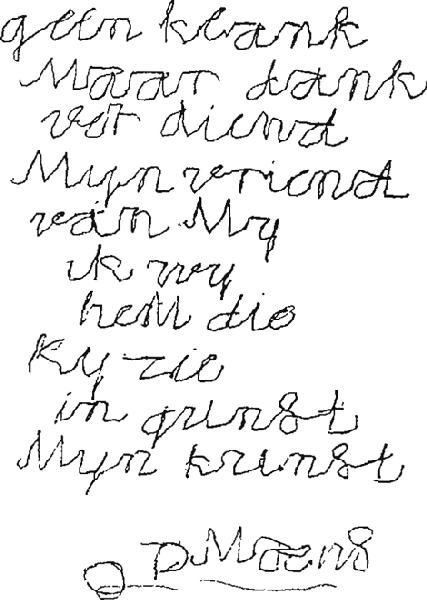 geen klank
Maar dank
vot diend
Myn vriend
van My
ik wy
hem die
Ky zie
in gunst
Myn kunst
P Maens